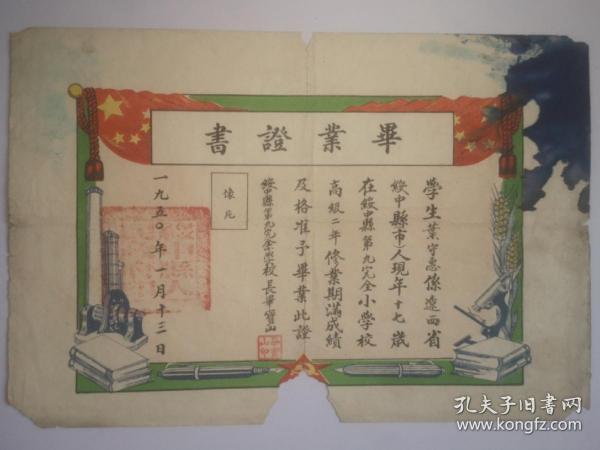 畢業證書
學生葉守惠係遼西省
綏中縣(市)人現年十七歲
在綏中縣第九完全小學校
高級二年修業期滿成績
及格准予畢業此證
綏中縣第九完全小學校長畢寶山
一九五〇年一月十三日
孔夫子旧书网
www.kongfz.com